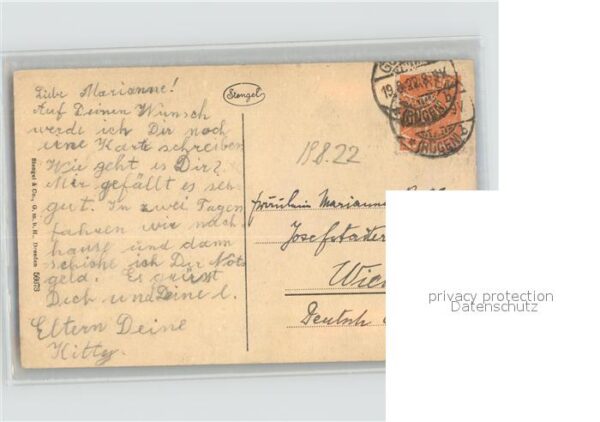 Liebe Marianne!
Auf Deinen Wunsch
werde ich Dir noch
eine Karte schreiben
Wie geht es Dir?
Mir gefällt es sehr
gut. In zwei Tagen
fahren wir nach
hause und dann
schicke ich Dir Not
geld. Es grüsst
Dich und Deine l.
Eltern Deine
Kitty.
Stengel & Co., G. m. b. H., Dresden 56073
Stengel
19.8.22
(RÜGEN)
19.8.22
Fräulein Marianne
Josefstädter
Wien
Deutsch
privacy protection
Datenschutz